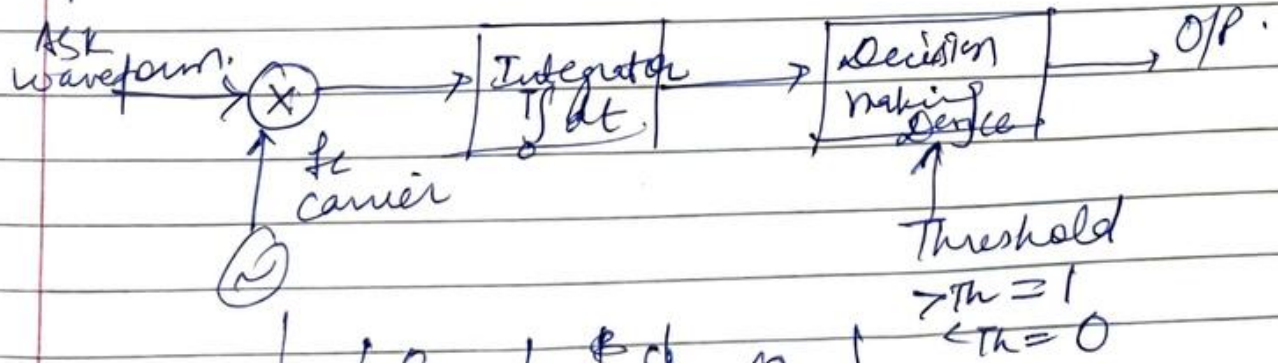 ASK
waveform.
X
Integrator
T∫0 dt
Decision
making
Device
O/P.
fc
carrier
~
Threshold
>Th = 1
<Th = 0